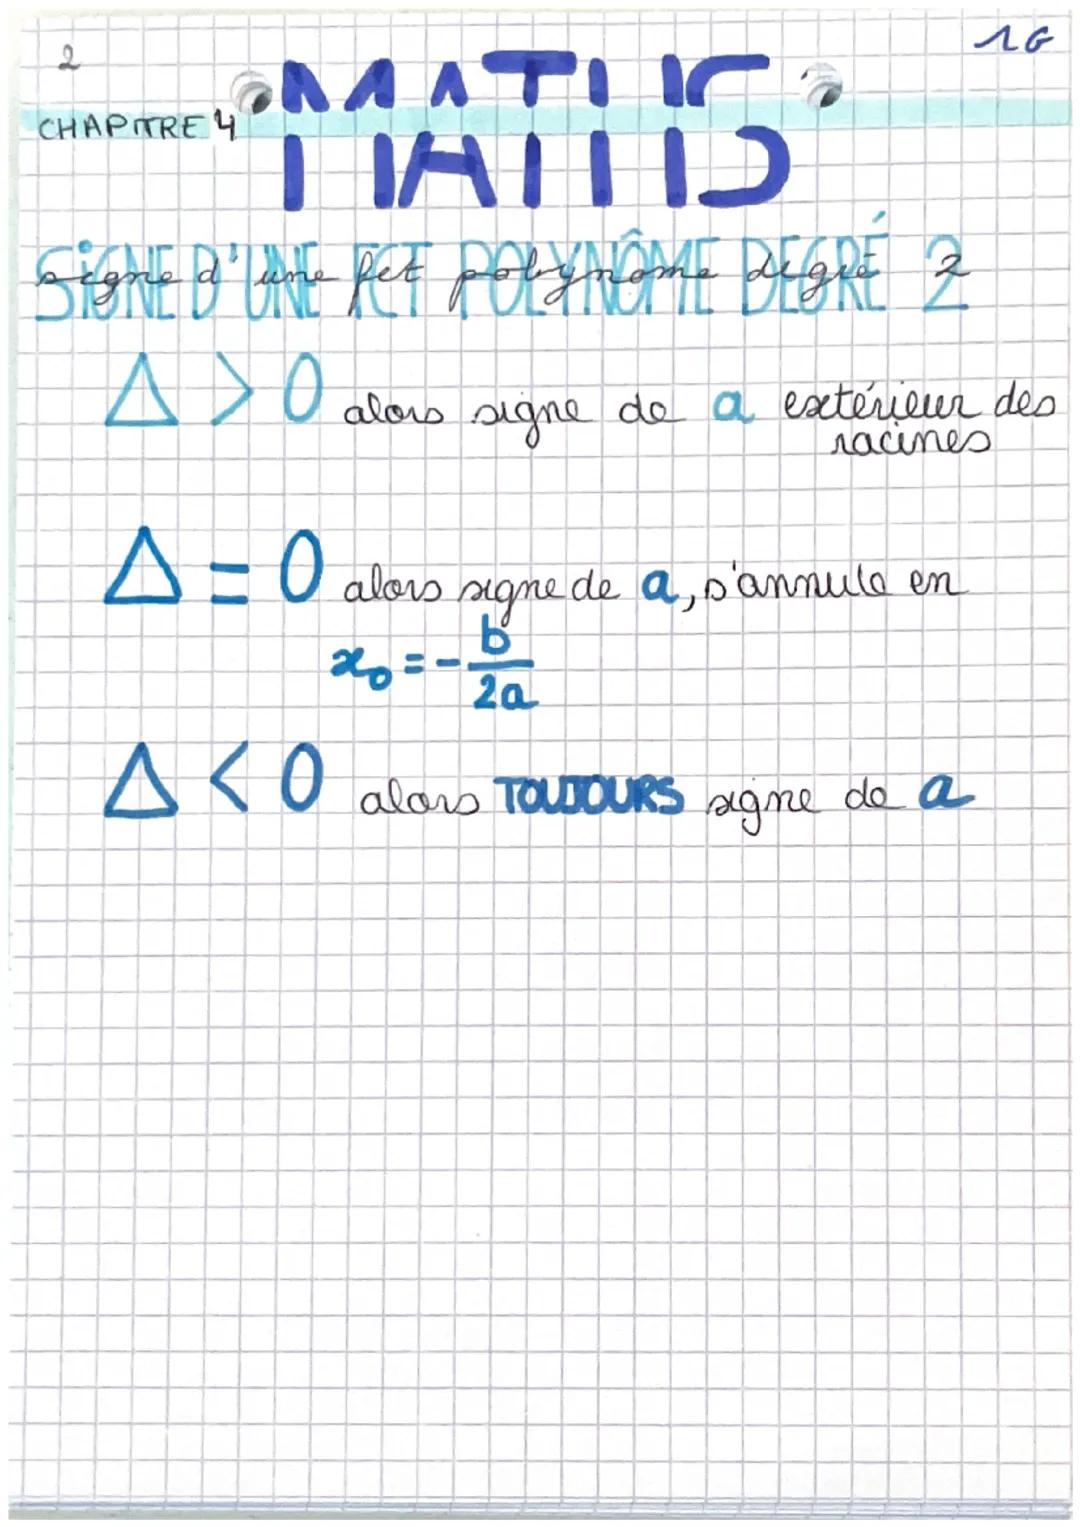 2
1G
MATHS
CHAPITRE 4
SiGNE D'UNE FCT POLYNÔME DEGRÉ 2
signe d'une fct polynome degré 2
Δ > 0 alors signe de a extérieur des
racines
Δ = 0 alors signe de a, s'annule en
x₀ = - b/2a
Δ < 0 alors TOUJOURS signe de a